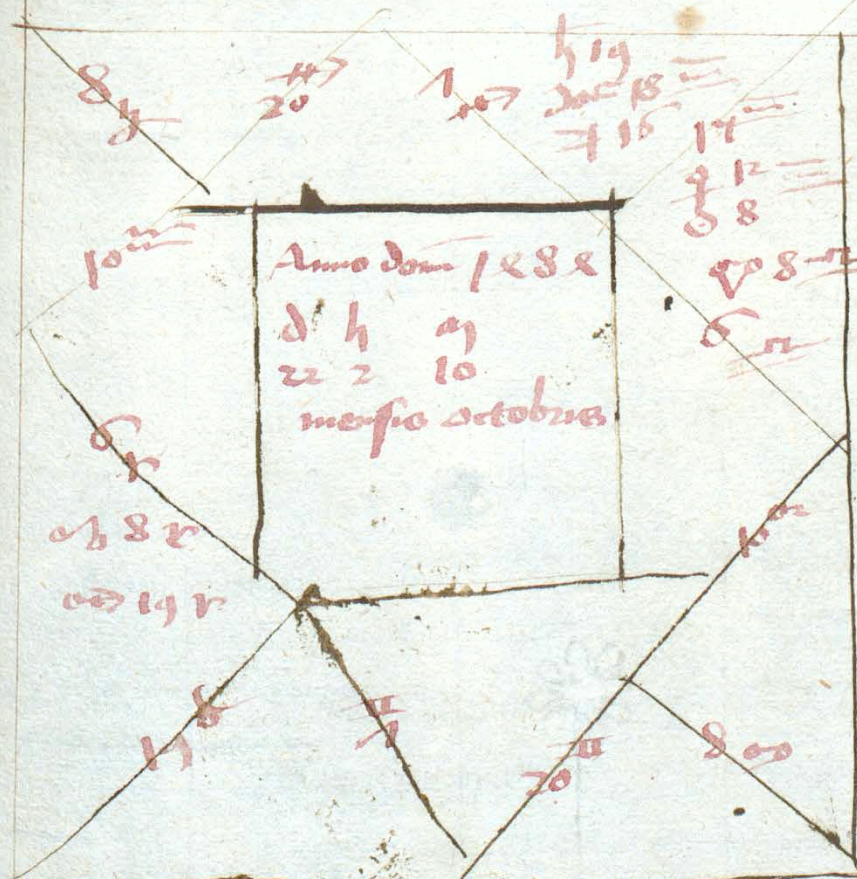 8 ♑
20 ♐
1 ♐
♄ 19
♃ 16
17 ♏
♀ 12
☿ 8
10 ♒
Anno dom 1484
d h m
22 2 10
mensis octobris
8 ♎
6 ♎
6 ♈
8 ♈
19 ♈
19 ♉
♊ 1
20 ♊
8 ♋
10 ♌